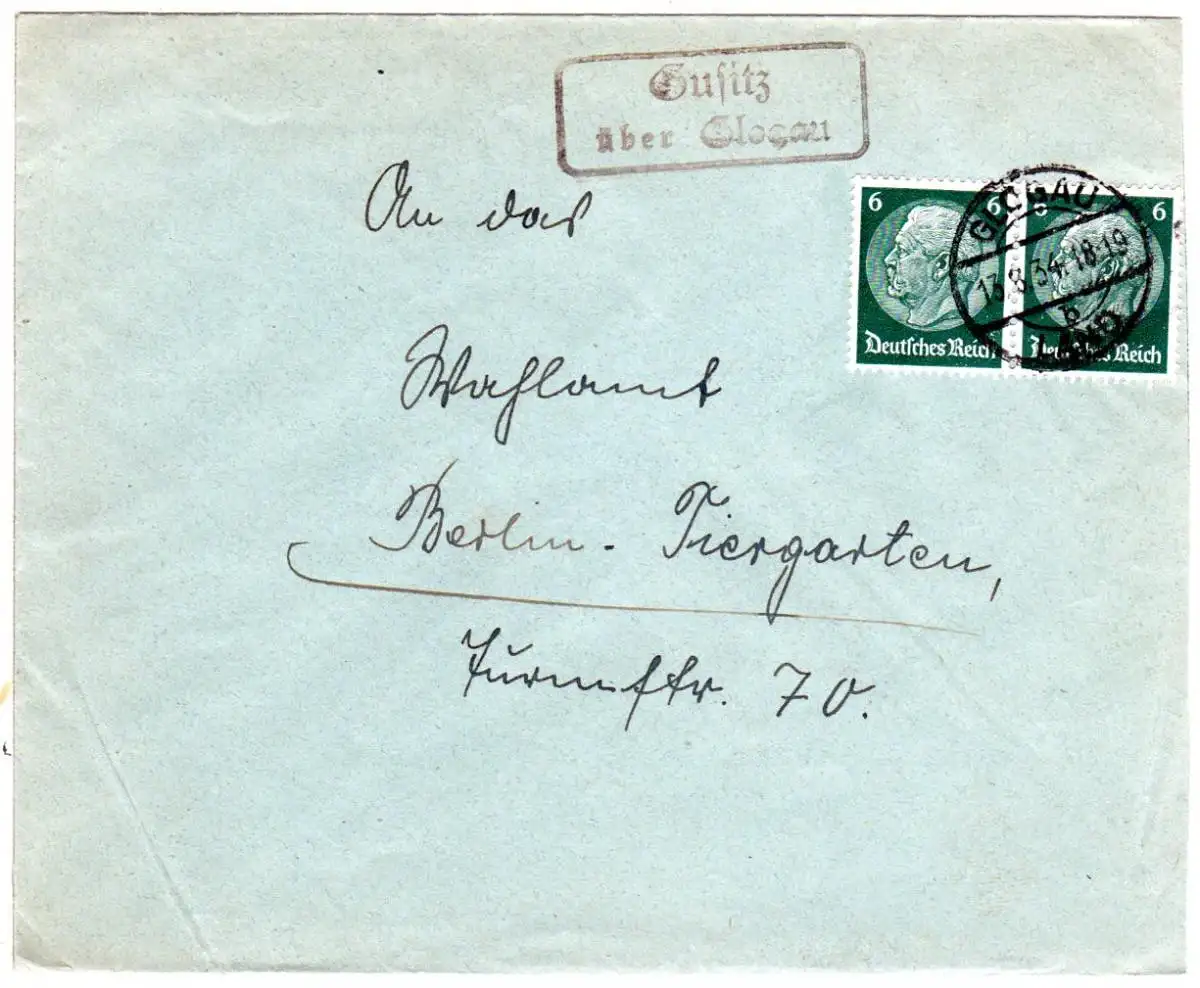 Gusitz
über Glogau
An das
6 6 6 6
GLOGAU
13.8.34.18-19
b
LAND
Deutsches Reich Deutsches Reich
Wahlamt
Berlin-Tiergarten,
Turmstr. 70.